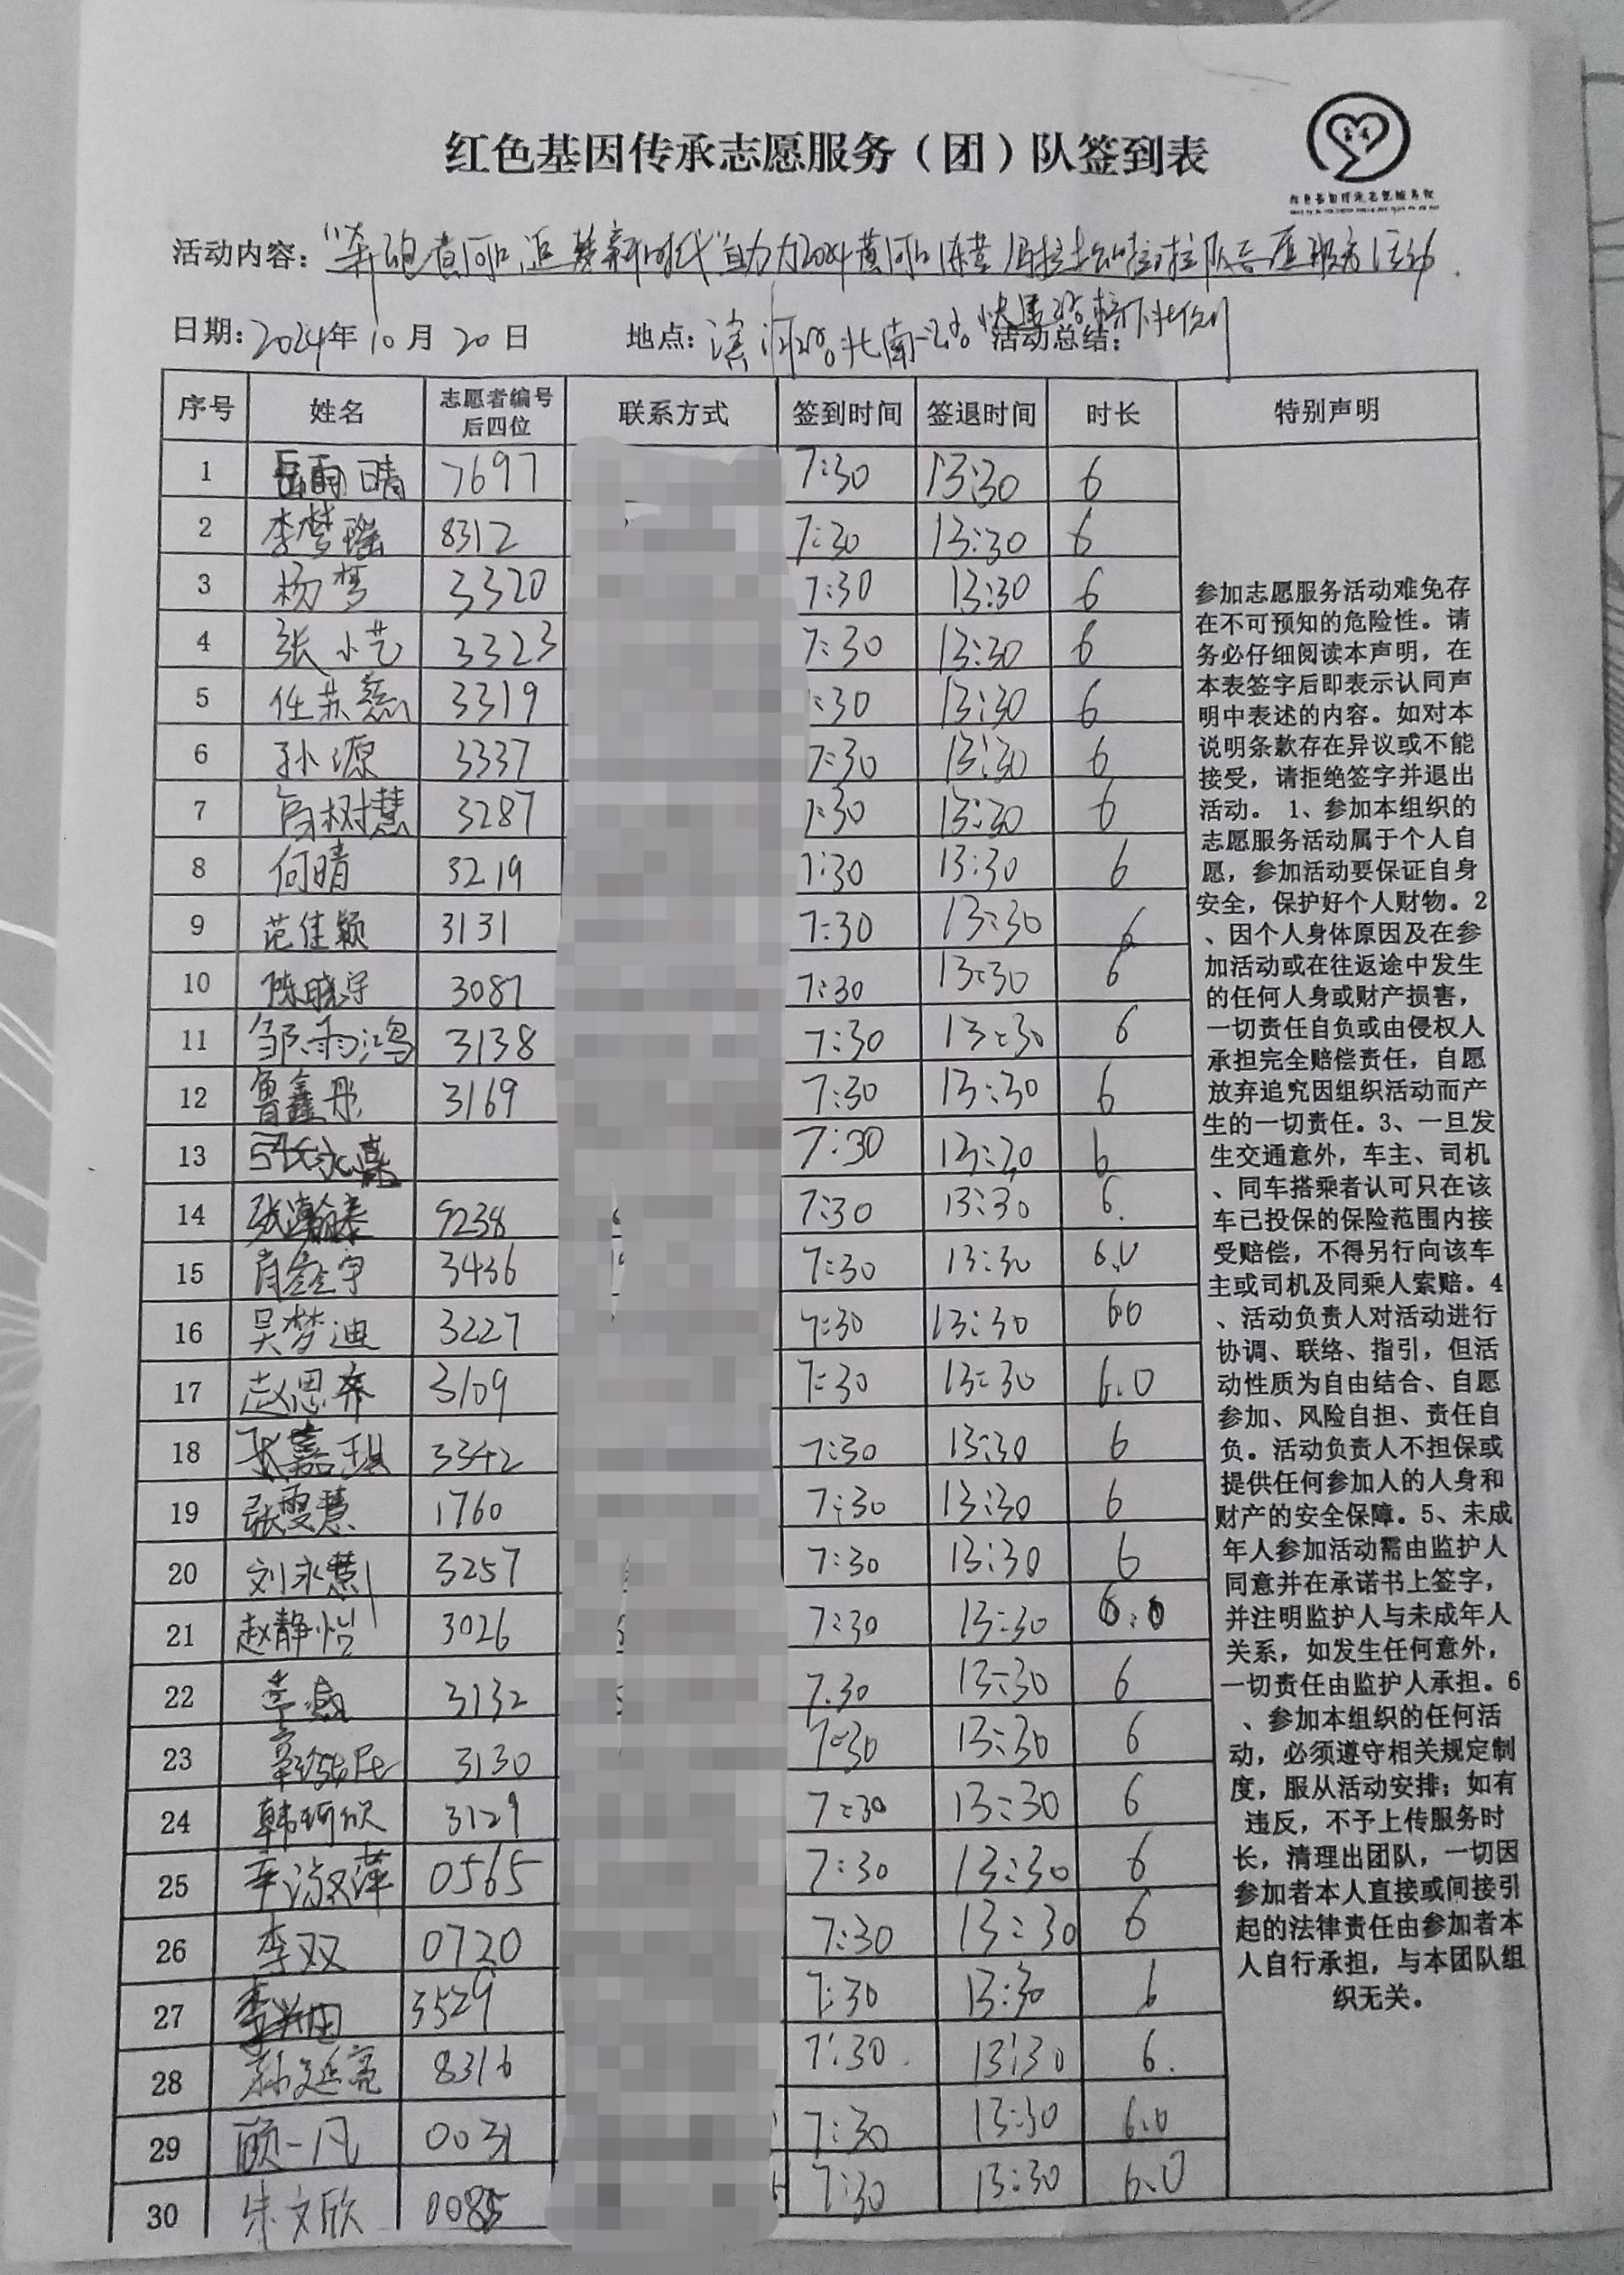 红色基因传承志愿服务（团）队签到表
活动内容：“奔跑黄河口，追梦新时代”助力2024黄河口东营马拉松啦啦队志愿服务活动.
日期：2024年10月20日 地点： 活动总结：
序号 姓名 志愿者编号后四位 联系方式 签到时间 签退时间 时长 特别声明
1 岳雨晴 7697 7:30 13:30 6
2 李梦瑶 8312 7:30 13:30 6
3 杨梦 3320 7:30 13:30 6
4 张小艺 3323 7:30 13:30 6
5 任苏 3319 :30 13:30 6
6 孙源 3337 7:30 13:30 6
7 高树慧 3287 7:30 13:30 6
8 何晴 3219 7:30 13:30 6
9 范佳颖 3131 7:30 13:30 6
10 陈晓宇 3087 7:30 13:30 6
11 邹雨鸿 3138 7:30 13:30 6
12 鲁鑫彤 3169 7:30 13:30 6
13 7:30 13:30 6
14 张瀚泰 9238 7:30 13:30 6.
15 肖鑫宇 3436 7:30 13:30 6.0
16 吴梦迪 3227 7:30 13:30 6.0
17 赵思齐 3109 7:30 13:30 6.0
18 张嘉琪 3342 7:30 13:30 6
19 张雯慧 1760 7:30 13:30 6
20 刘永慧 3257 7:30 13:30 6
21 赵静怡 3026 7:30 13:30 6.0
22 李 3132 7.30 13:30 6
23 3130 7:30 13:30 6
24 韩珂欣 3129 7:30 13:30 6
25 李淑萍 0565 7:30 13:30 6
26 李双 0720 7:30 13:30 6
27 3529 7:30 13:30 6
28 孙延亮 8316 7:30. 13:30 6.
29 顾一凡 0031 7:30 13:30 6.0
30 朱文欣 0085 7:30 13:30 6.0
参加志愿服务活动难免存
在不可预知的危险性。请
务必仔细阅读本声明，在
本表签字后即表示认同声
明中表述的内容。如对本
说明条款存在异议或不能
接受，请拒绝签字并退出
活动。 1、参加本组织的
志愿服务活动属于个人自
愿，参加活动要保证自身
安全，保护好个人财物。2
、因个人身体原因及在参
加活动或在往返途中发生
的任何人身或财产损害，
一切责任自负或由侵权人
承担完全赔偿责任，自愿
放弃追究因组织活动而产
生的一切责任。3、一旦发
生交通意外，车主、司机
、同车搭乘者认可只在该
车已投保的保险范围内接
受赔偿，不得另行向该车
主或司机及同乘人索赔。4
、活动负责人对活动进行
协调、联络、指引，但活
动性质为自由结合、自愿
参加、风险自担、责任自
负。活动负责人不担保或
提供任何参加人的人身和
财产的安全保障。5、未成
年人参加活动需由监护人
同意并在承诺书上签字，
并注明监护人与未成年人
关系，如发生任何意外，
一切责任由监护人承担。6
、参加本组织的任何活
动，必须遵守相关规定制
度，服从活动安排；如有
违反，不予上传服务时
长，清理出团队，一切因
参加者本人直接或间接引
起的法律责任由参加者本
人自行承担，与本团队组
织无关。